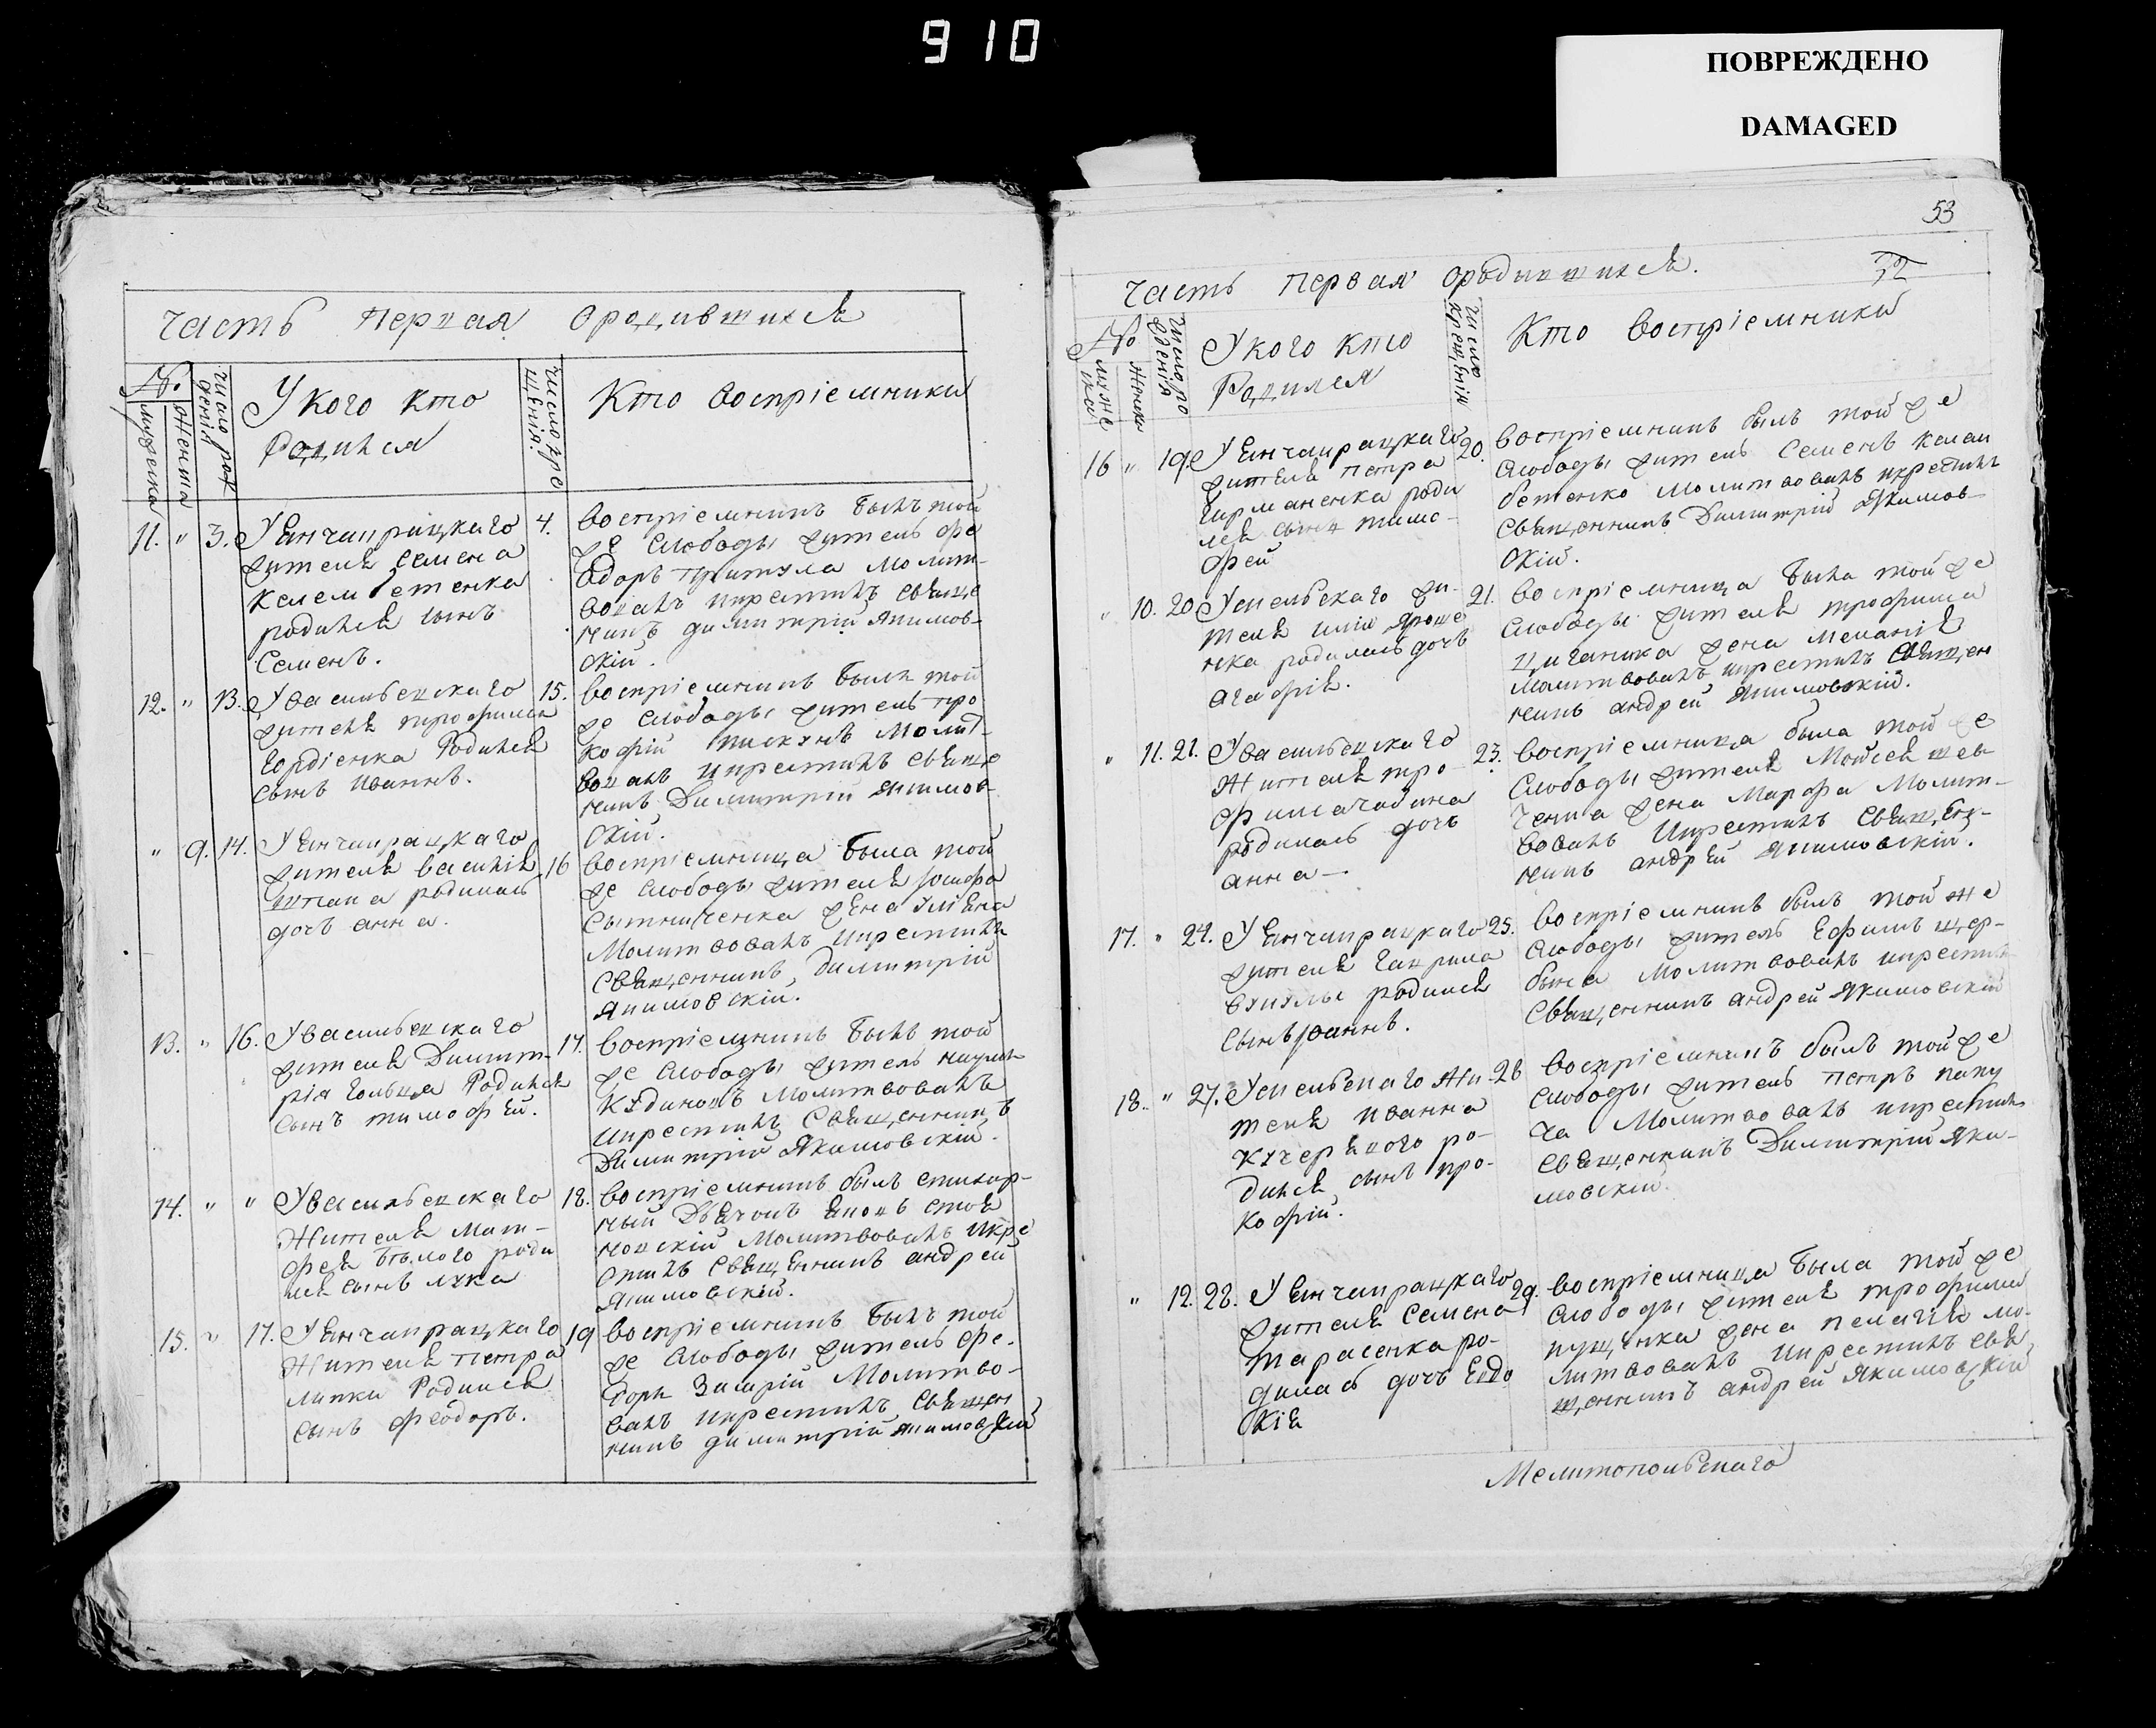 910
ПОВРЕЖДЕНО
DAMAGED
часть первая ородившихся
№
мужеска
женска
число рож
денія
У кого кто
Родился
число кре
щенія.
Кто воспріемники
11. " 3. У Янчикрацкаго 4.
жителя Семена
Келембетенка
родился сынъ
Семенъ.
воспріемникъ былъ той
же слободы житель фе
одоръ Притула молит-
вовалъ икрестилъ свяще
никъ димитрій Якимов-
скій.
12. " 13. У васильевскаго 15.
жителя трофима
Гордіенка Родился
сынъ иваннъ.
воспріемникъ былъ той
же слободы житель про
кофій пискунъ Молит-
вовалъ икрестилъ свяще
никъ Димитрій Якимов-
скій.
" 9. 14. У Янчикрацкаго 16
жителя василія
родилась
дочь анна.
воспріемница была той
же слободы жителя Іосифа
Сытниченка жена Уліяна
Молитвовалъ икрестилъ
Священникъ Димитрій
Якимовскій.
13. " 16. У васильевскаго 17.
жителя Димит-
рія Гольца Родился
сынъ тимофей.
воспріемникъ былъ той
же слободы житель наумъ
Кудиновъ Молитвовалъ
икрестилъ Священникъ
Димитрій Якимовскій.
14. " " У васильевскаго 18.
Жителя мат-
фея белого роди
лся сынъ лука
воспріемникъ былъ стихар-
ный Дьячокъ Яковъ стоя
новскій Молитвовалъ икре
стилъ Священникъ андрей
Якимовскій.
15. " 17. У Янчикрацкаго 19
Жителя петра
липки Родился
сынъ феодоръ.
воспріемникъ былъ той
же слободы житель фе-
доръ Молитво-
валъ икрестилъ Священ
никъ димитрій Якимовскій
53
часть первая ородившихся.
№
муже
ска
женска
число ро
жденія
У кого кто
Родился
число
крещенія
Кто воспріемники
16 " 19. У Янчикрацкаго 20.
жителя петра
Бирманенка роди
лся сынъ тимо-
фей
воспріемникъ былъ той же
слободы житель Семенъ Келем
бетенко молитвовалъ икрестилъ
Священникъ Димитрій Якимов-
скій.
" 10. 20 У скельскаго жи- 21.
теля иліи Яроше
нка родилась дочь
агафія.
воспріемница была той же
слободы жителя трофима
Цыганика жена меланія
молитвовалъ икрестилъ Священ
никъ андрей Якимовскій.
" 11. 21. У васильевскаго 23.
Жителя тро-
фима чабана
родилась дочь
анна —
воспріемница была той же
слободы жителя Мойсея шев
ченка жена Марфа Молит-
вовалъ икрестилъ Священ-
никъ андрей Якимовскій.
17. " 24. У Янчикрацкаго 25.
жителя гаврила
родился
сынъ Іоаннъ.
воспріемникъ былъ той же
слободы житель Ефимъ щер-
бина Молитвовалъ икрестилъ
Священникъ андрей Якимовскій
18. " 27. У скельскаго жи- 28
теля иванна
Кучерявого ро-
дился сынъ про-
кофій.
воспріемникъ былъ той же
слободы житель петръ папу
ча Молитвовалъ икрестилъ
Священникъ Димитрій Яки-
мовскій.
" 12. 28. У Янчикрацкаго 29.
жителя Семена
тарасенка ро-
дилась дочь Евдо
кія
воспріемница была той же
слободы жителя трофима
пущенка жена пелагія мо-
литвовалъ икрестилъ свя
щенникъ андрей Якимовскій
Мелитопольскаго